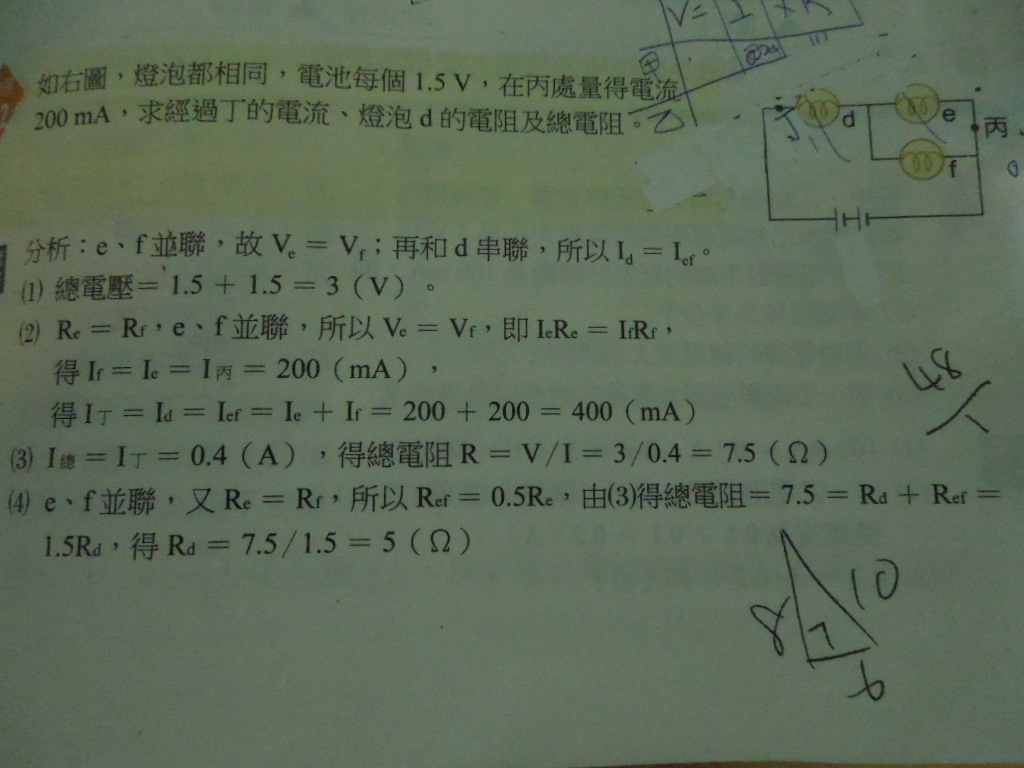 V = I × R
如右圖，燈泡都相同，電池每個 1.5 V，在丙處量得電流
200 mA，求經過丁的電流、燈泡 d 的電阻及總電阻。
乙
丁
d
e
丙
f
分析：e、f 並聯，故 Ve = Vf；再和 d 串聯，所以 Id = Ief。
(1) 總電壓 = 1.5 + 1.5 = 3（V）。
(2) Re = Rf，e、f 並聯，所以 Ve = Vf，即 IeRe = IfRf，
得 If = Ie = I丙 = 200（mA），
得 I丁 = Id = Ief = Ie + If = 200 + 200 = 400（mA）
(3) I總 = I丁 = 0.4（A），得總電阻 R = V/I = 3/0.4 = 7.5（Ω）
(4) e、f 並聯，又 Re = Rf，所以 Ref = 0.5Re，由(3)得總電阻 = 7.5 = Rd + Ref =
1.5Rd，得 Rd = 7.5/1.5 = 5（Ω）
48
8
10
6